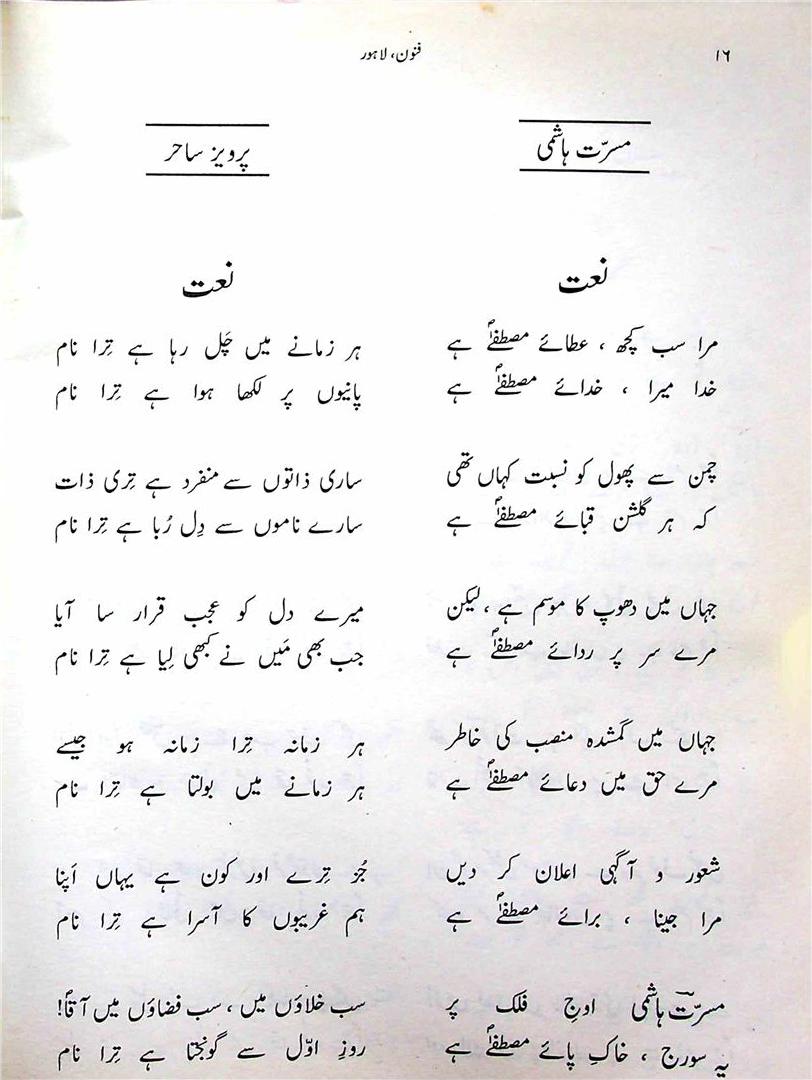 ۱۶
فنون، لاہور
مسرّت ہاشمی
نعت
مرا سب کچھ ، عطائے مصطفیٰؐ ہے
خدا میرا ، خدائے مصطفیٰؐ ہے
چمن سے پھول کو نسبت کہاں تھی
کہ ہر گلشن قبائے مصطفیٰؐ ہے
جہاں میں دھوپ کا موسم ہے ، لیکن
مرے سر پر ردائے مصطفیٰؐ ہے
جہاں میں گمشدہ منصب کی خاطر
مرے حق میں دعائے مصطفیٰؐ ہے
شعور و آگہی اعلان کر دیں
مرا جینا ، برائے مصطفیٰؐ ہے
مسرّتؔ ہاشمی اوجِ فلک پر
یہ سورج ، خاکِ پائے مصطفیٰؐ ہے
پرویز ساحر
نعت
ہر زمانے میں چَل رہا ہے تِرا نام
پانیوں پر لکھا ہوا ہے تِرا نام
ساری ذاتوں سے منفرد ہے تِری ذات
سارے ناموں سے دِل رُبا ہے تِرا نام
میرے دل کو عجب قرار سا آیا
جب بھی مَیں نے کبھی لِیا ہے تِرا نام
ہر زمانہ تِرا زمانہ ہو جیسے
ہر زمانے میں بولتا ہے تِرا نام
جُز تِرے اور کون ہے یہاں اَپنا
ہم غریبوں کا آسرا ہے تِرا نام
سب خلاؤں میں ، سب فضاؤں میں آقاؐ!
روزِ اوّل سے گونجتا ہے تِرا نام